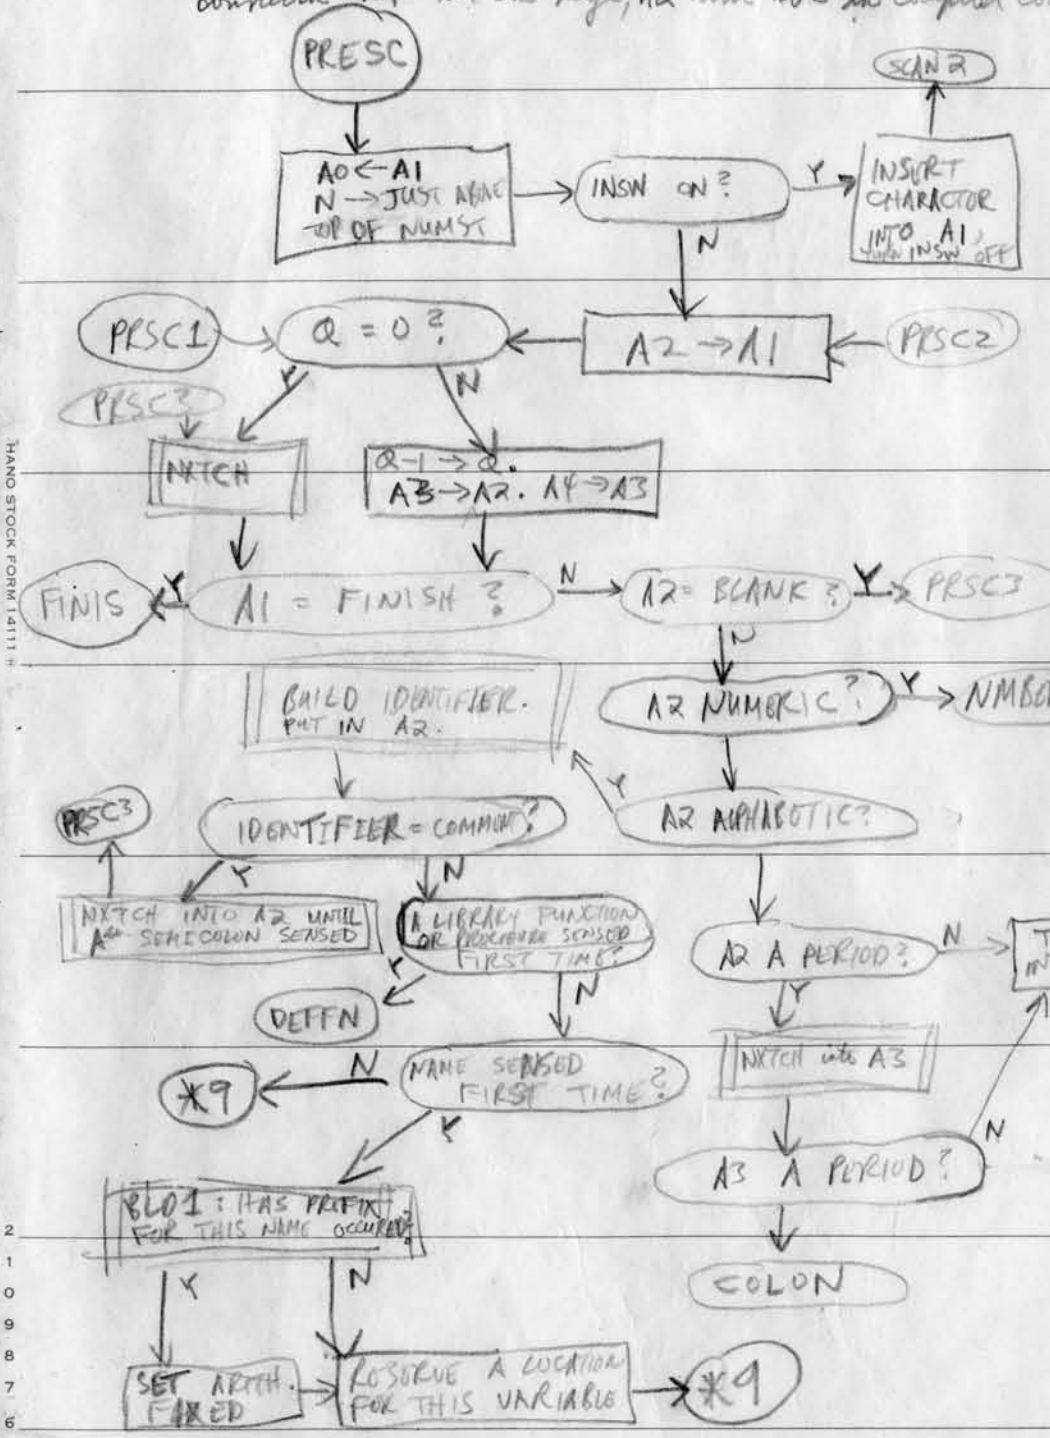 PRESC
SCAN 2
A0 ← A1
N → JUST ABOVE
TOP OF NUMST
INSW ON?
Y
INSERT
CHARACTOR
INTO A1,
TURN INSW OFF
N
PRSC1
Q = 0 ?
A2 → A1
PRSC2
PRSC3
Y
N
NXTCH
Q-1 → Q.
A3 → A2. A4 → A3
HANO STOCK FORM 14111
FINIS
Y
A1 = FINISH ?
N
A2 = BLANK ?
Y
PRSC3
N
BUILD IDENTIFIER.
PUT IN A2.
A2 NUMERIC?
Y
PRSC3
IDENTIFIER = COMMENT?
Y
A2 ALPHABETIC?
Y
N
NXTCH INTO A2 UNTIL
A SEMICOLON SENSED
A LIBRARY FUNCTION
OR PROCEDURE SENSED
FIRST TIME?
A2 A PERIOD?
N
Y
DEFFN
N
Y
*9
N
NAME SENSED
FIRST TIME?
NXTCH into A3
Y
A3 A PERIOD?
N
BLD1 : HAS PREFIX
FOR THIS NAME OCCURRED?
COLON
Y
N
SET ARITH.
FIXED
RESERVE A LOCATION
FOR THIS VARIABLE
*9
2
1
0
9
8
7
6